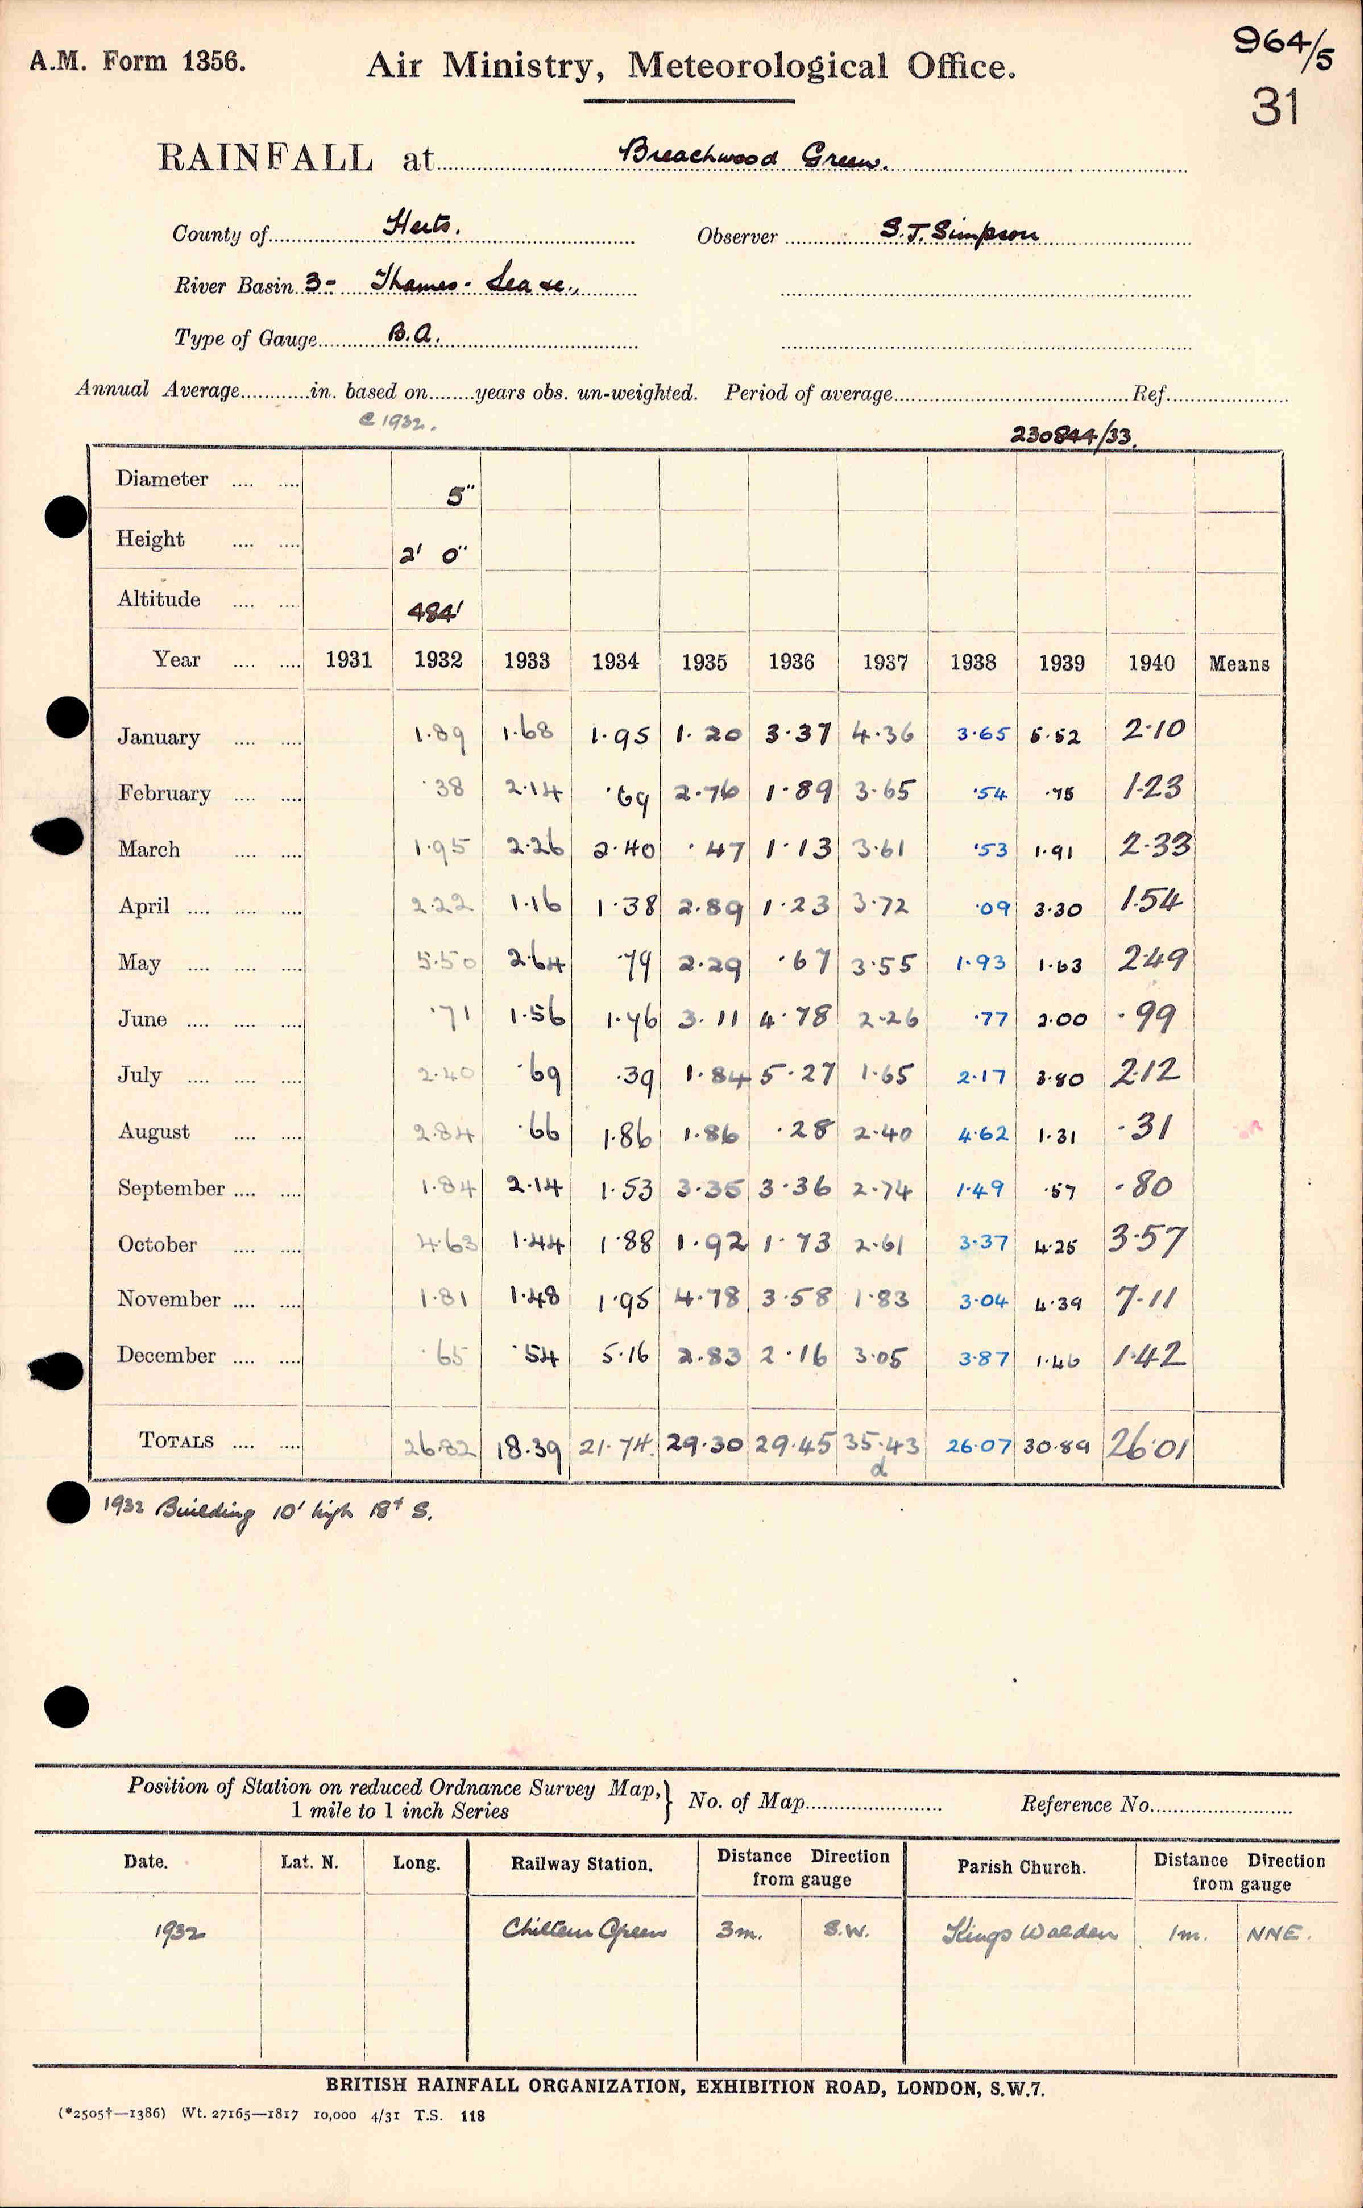 A.M. Form 1356.
Air Ministry, Meteorological Office.
964/5
31
RAINFALL at Breachwood Green.
County of Herts. Observer S.J. Simpson
River Basin 3- Thames - Lea &c.,
Type of Gauge B.A.
Annual Average in. based on years obs. un-weighted. Period of average Ref.
c 1932. 230844/33.
Diameter 5"
Height 2' 0"
Altitude 484'
Year 1931 1932 1933 1934 1935 1936 1937 1938 1939 1940 Means
January 1.89 1.68 1.95 1.20 3.37 4.36 3.65 5.52 2.10
February .38 2.14 .69 2.76 1.89 3.65 .54 .75 1.23
March 1.95 2.26 2.40 .47 1.13 3.61 .53 1.91 2.33
April 2.22 1.16 1.38 2.89 1.23 3.72 .09 3.30 1.54
May 5.50 2.64 .79 2.29 .67 3.55 1.93 1.63 2.49
June .71 1.56 1.76 3.11 4.78 2.26 .77 2.00 .99
July 2.40 .69 .39 1.84 5.27 1.65 2.17 3.80 2.12
August 2.84 .66 1.86 1.86 .28 2.40 4.62 1.31 .31
September 1.84 2.14 1.53 3.35 3.36 2.74 1.49 .57 .80
October 4.63 1.44 1.88 1.92 1.73 2.61 3.37 4.25 3.57
November 1.81 1.48 1.95 4.78 3.58 1.83 3.04 4.39 7.11
December .65 .54 5.16 2.83 2.16 3.05 3.87 1.46 1.42
TOTALS 26.82 18.39 21.74 29.30 29.45 35.43 26.07 30.89 26.01
d
1932 Building 10' high 18ft S.
Position of Station on reduced Ordnance Survey Map, 1 mile to 1 inch Series } No. of Map Reference No.
Date. Lat. N. Long. Railway Station. Distance Direction from gauge Parish Church. Distance Direction from gauge
1932 Chiltern Green 3m. S.W. Kings Walden 1m. NNE.
BRITISH RAINFALL ORGANIZATION, EXHIBITION ROAD, LONDON, S.W.7.
(*2505†—1386) Wt. 27165—1817 10,000 4/31 T.S. 118